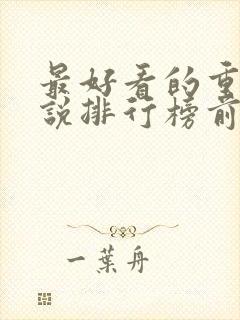 最好看的重
說排行榜前
一葉舟